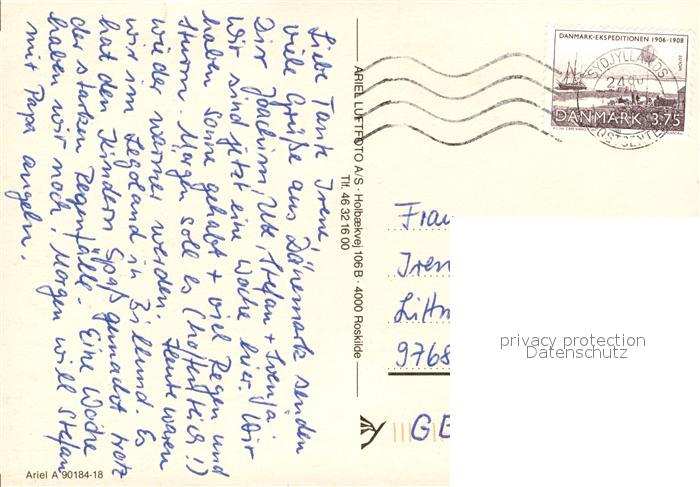 Liebe Tante Irene,
viele Grüße aus Dänemark senden
Dir Joachim, Ute, Stefan + Svenja.
Wir sind jetzt eine Woche hier. Wir
haben Sonne gehabt + viel Regen und
Sturm. Morgen soll es (hoffentlich!)
wieder wärmer werden. Heute waren
wir im Legoland in Billund. Es
hat den Kindern Spaß gemacht trotz
der starken Regenfälle. Eine Woche
haben wir noch. Morgen will Stefan
mit Papa angeln.
Ariel A 90184-18
ARIEL LUFTFOTO A/S · Holbækvej 106 B · 4000 Roskilde
Tlf. 46 32 16 00
DANMARK-EKSPEDITIONEN 1906-1908
EUROPA
DANMARK 3.75
SYDJYLLANDS
POSTCENTER
Frau
Iren
Litt
9768
GE
privacy protection
Datenschutz